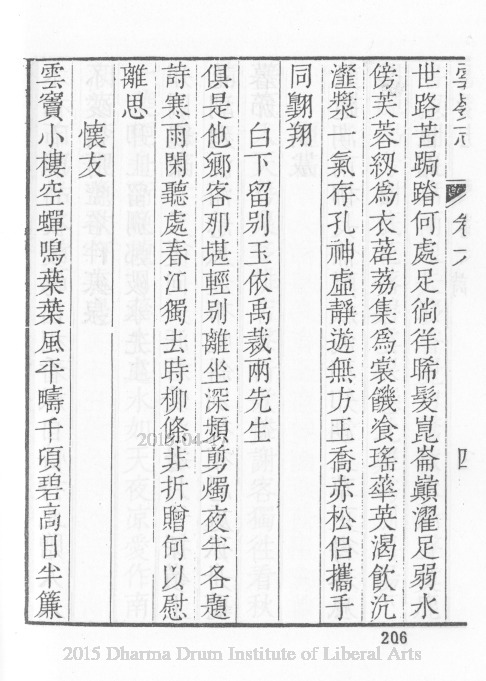 雲峯志 卷六 四
世路苦跼蹐何處足徜徉晞髮崑崙巔濯足弱水
傍芙蓉紉爲衣薜荔集爲裳饑飡瑤華英渴飲沆
瀣漿氣存孔神虛靜遊無方王喬赤松侶攜手
同翺翔
白下留別玉依禹裁兩先生
俱是他鄉客那堪輕別離坐深頻剪燭夜半各題
詩寒雨閑聽處春江獨去時柳條非折贈何以慰
離思
懷友
雲竇小樓空蟬鳴葉葉風平疇千頃碧高日半簾
206
2015 Dharma Drum Institute of Liberal Arts